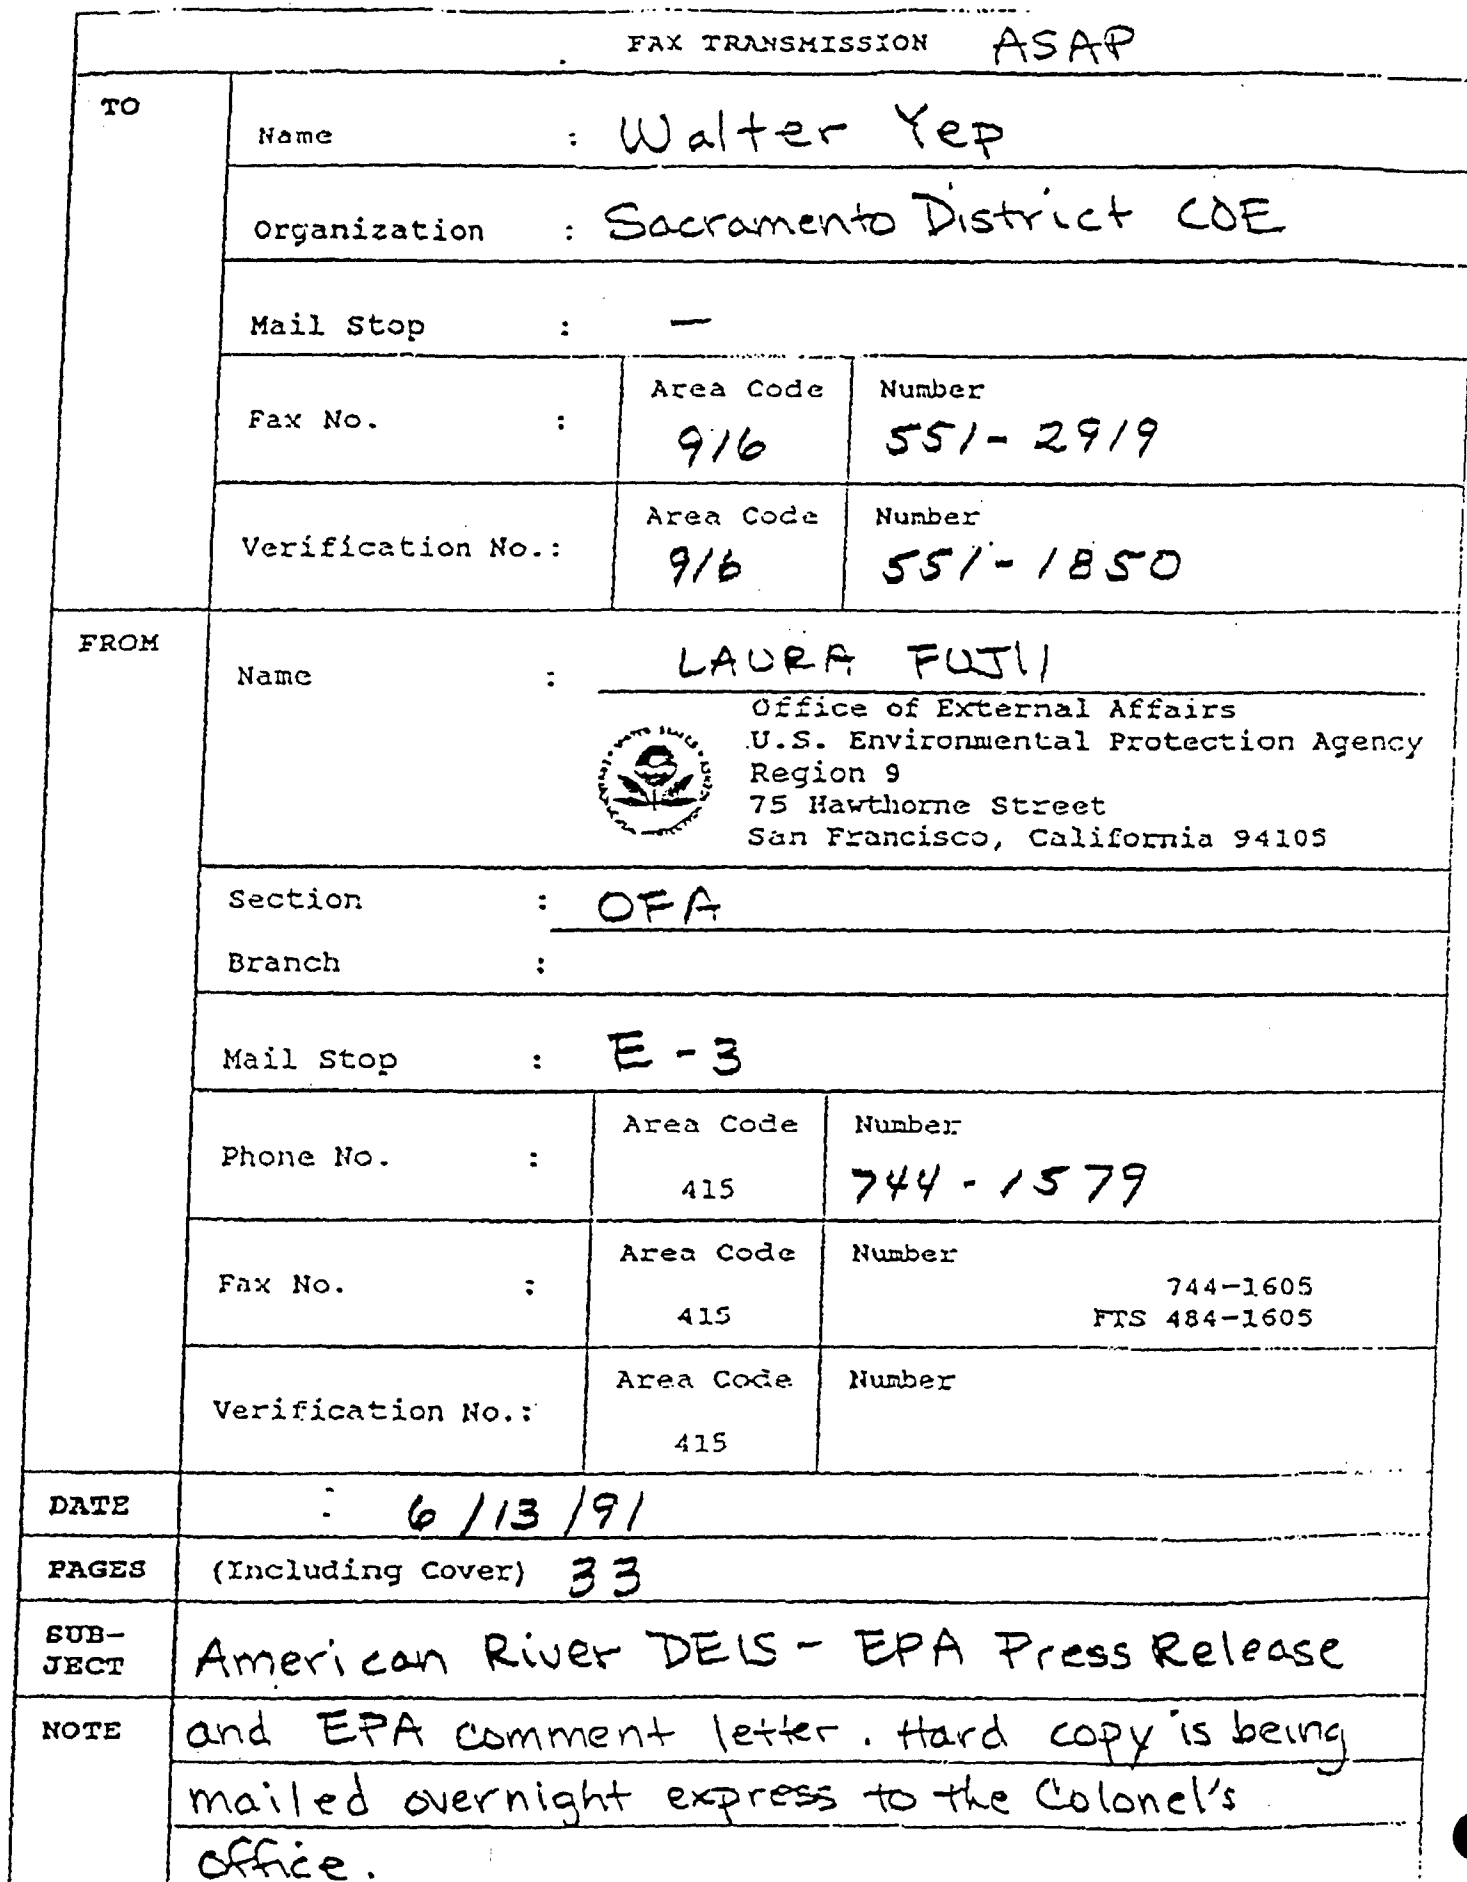 FAX TRANSMISSION ASAP
TO
Name : Walter Yep
Organization : Sacramento District COE
Mail Stop : —
Fax No. : Area Code Number
916 551-2919
Verification No.: Area Code Number
916 551-1850
FROM
Name : LAURA FUJII
Office of External Affairs
U.S. Environmental Protection Agency
Region 9
75 Hawthorne Street
San Francisco, California 94105
Section : OFA
Branch :
Mail Stop : E-3
Phone No. : Area Code Number
415 744-1579
Fax No. : Area Code Number
744-1605
415 FTS 484-1605
Verification No.: Area Code Number
415
DATE : 6/13/91
PAGES (Including Cover) 33
SUB-
JECT American River DEIS - EPA Press Release
NOTE and EPA comment letter. Hard copy is being
mailed overnight express to the Colonel's
office.